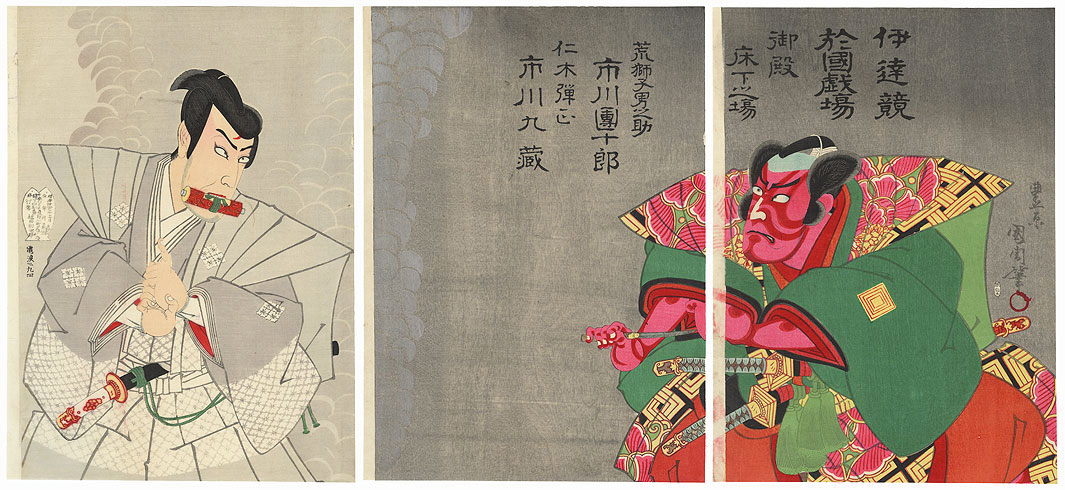 伊達競
於國戯場
御殿
床下の場
荒獅子男之助
市川團十郎
仁木弾正
市川九蔵
豊原
国周筆